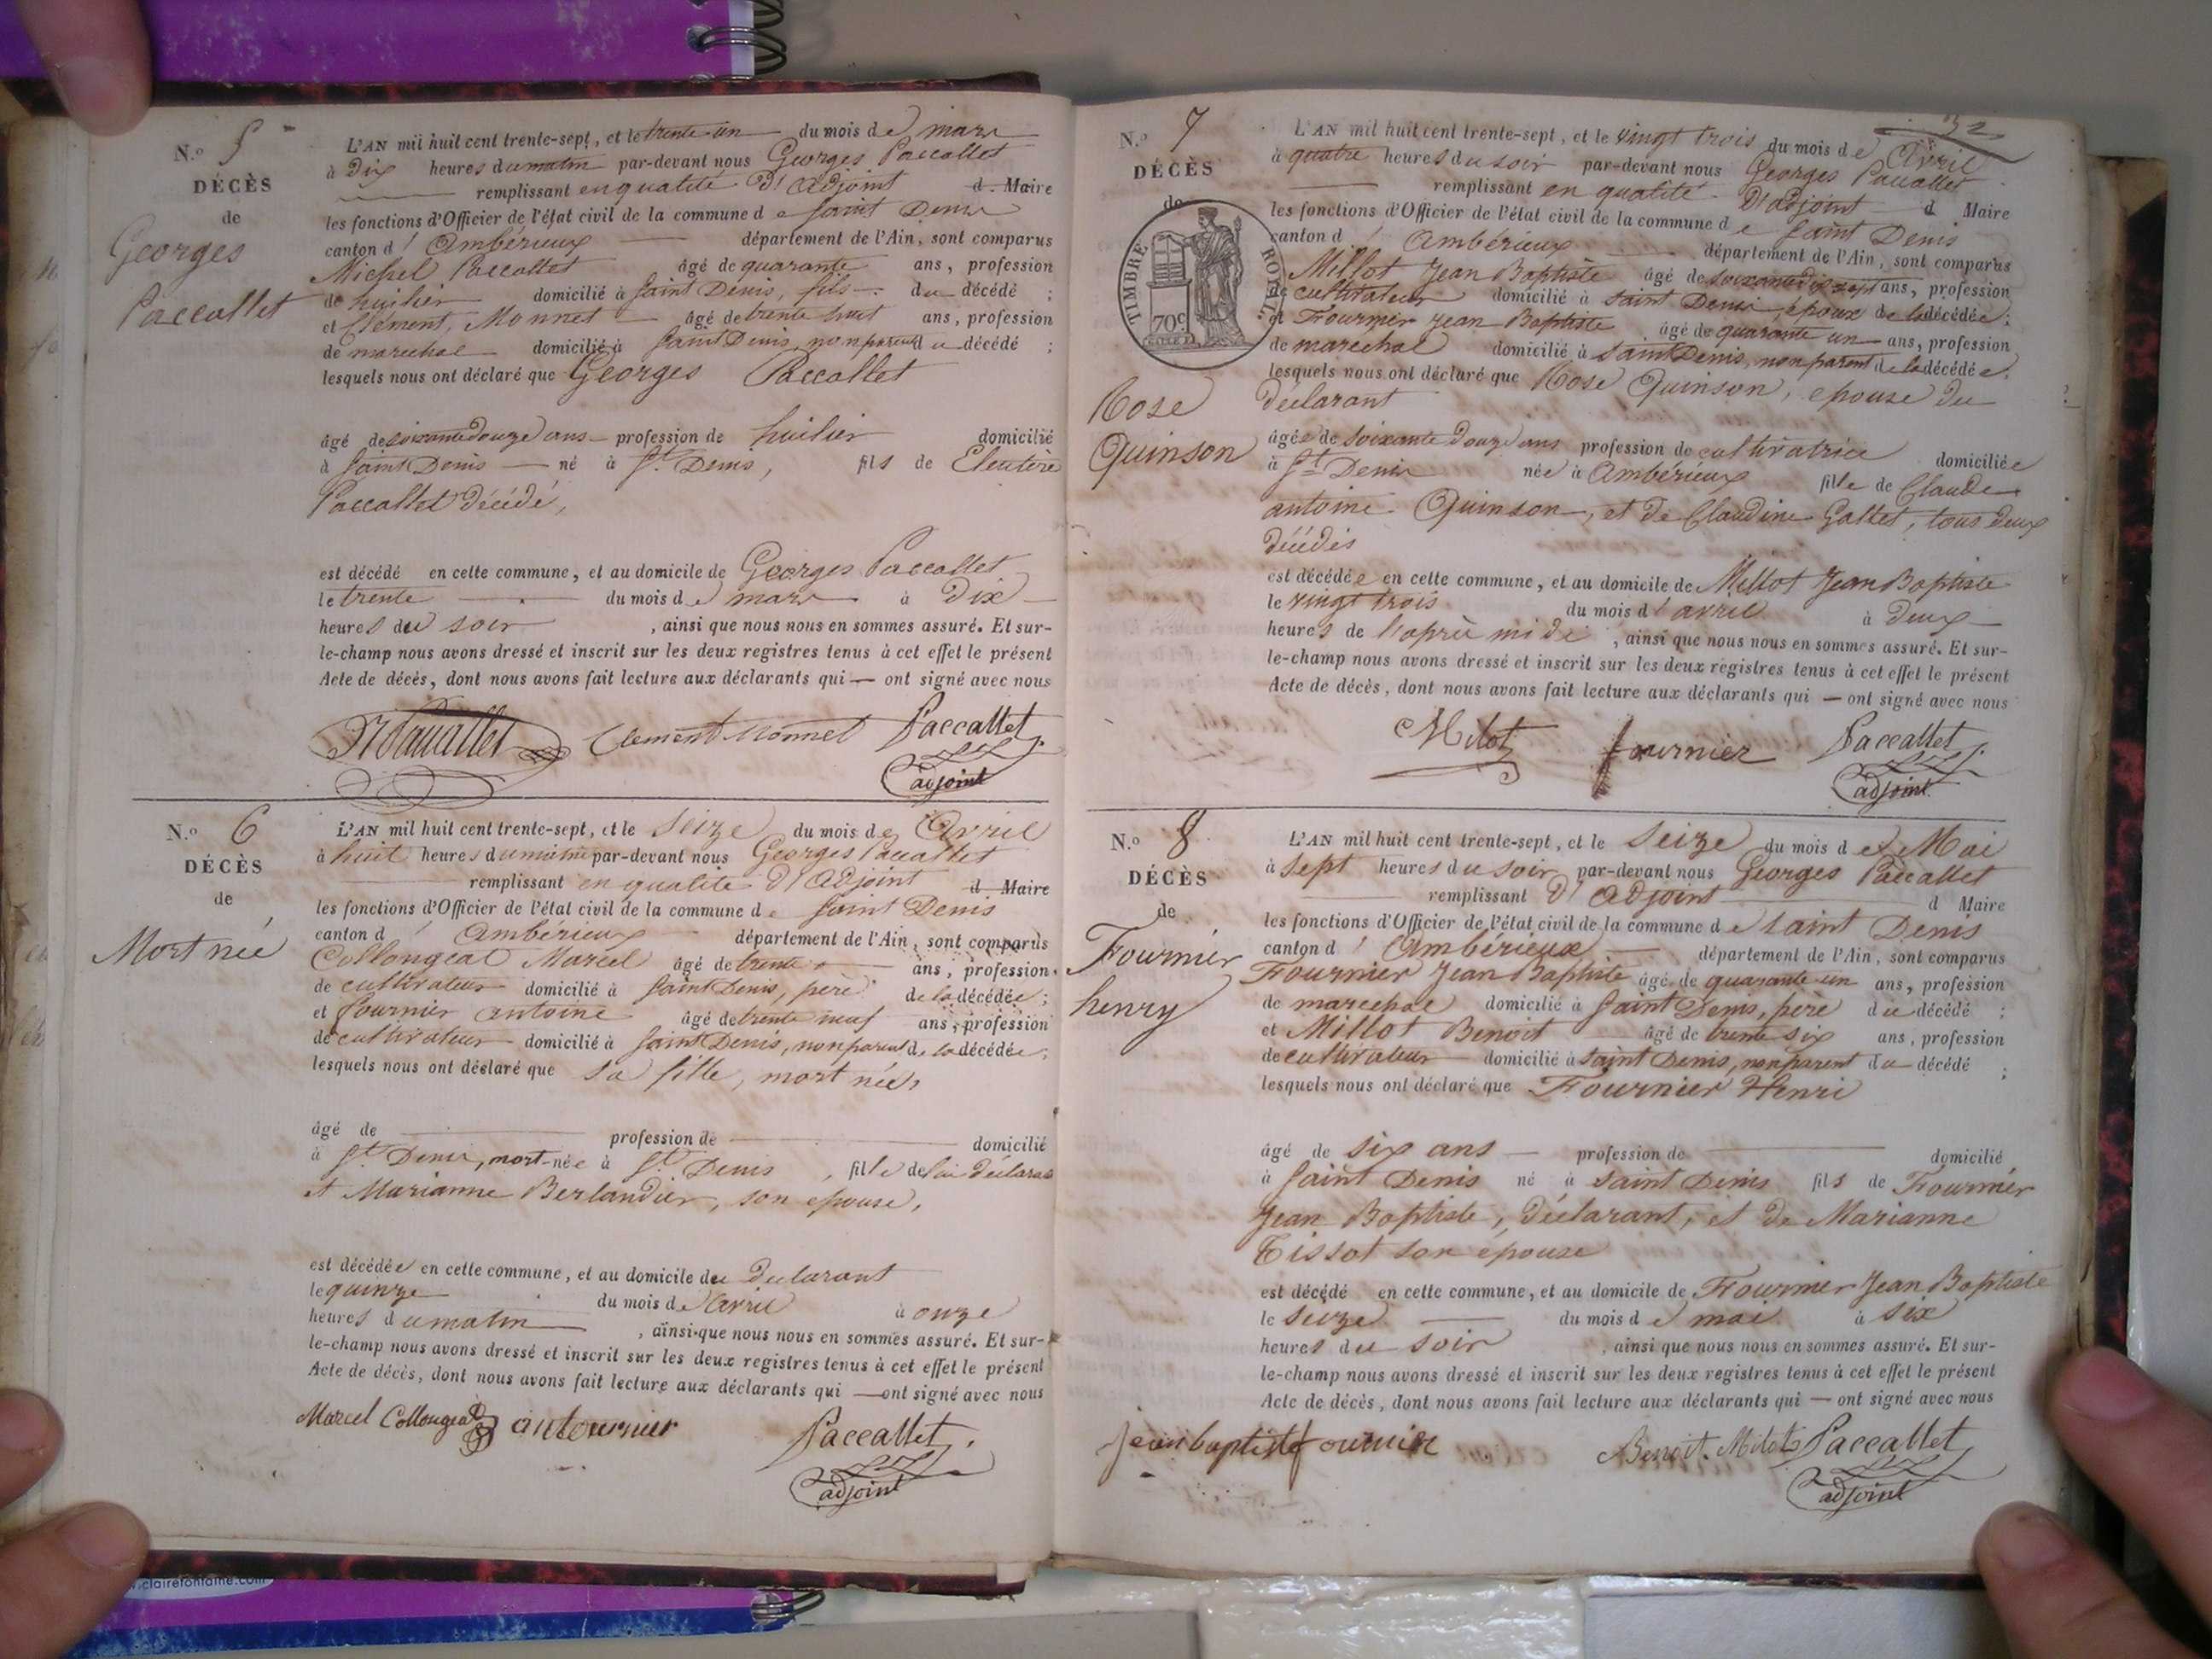 N.º 5
DÉCÈS
de
Georges
Paccallet
L'AN mil huit cent trente-sept, et le trente un du mois de mars
à Dix heures du matin par-devant nous Georges Paccallet
remplissant en qualité d'adjoint d. Maire
les fonctions d'Officier de l'état civil de la commune de Saint Denis
canton d'Ambérieux département de l'Ain, sont comparus
Michel Paccallet âgé de quarante ans, profession
de huilier domicilié à Saint Denis, fils du décédé ;
et Clément, Monnet âgé de trente huit ans, profession
de marechal domicilié à Saint Denis, non parent du décédé ;
lesquels nous ont déclaré que Georges Paccallet
âgé de soixante douze ans profession de huilier domicilié
à Saint Denis né à St. Denis, fils de Eleutère
Paccallet décédé,
est décédé en cette commune, et au domicile de Georges Paccallet
le trente du mois de mars à Dix
heures du soir, ainsi que nous nous en sommes assuré. Et sur-
le-champ nous avons dressé et inscrit sur les deux registres tenus à cet effet le présent
Acte de décès, dont nous avons fait lecture aux déclarants qui ont signé avec nous
Paccallet Clement Monnet Paccallet
adjoint
N.º 6
DÉCÈS
de
Mort née
L'AN mil huit cent trente-sept, et le Seize du mois de Avril
à huit heures du matin par-devant nous Georges Paccallet
remplissant en qualité d'adjoint d Maire
les fonctions d'Officier de l'état civil de la commune de Saint Denis
canton d'Ambérieux département de l'Ain, sont comparus
Collongeat Marcel âgé de trente ans, profession
de cultivateur domicilié à Saint Denis, père de la décédée ;
et fournier antoine âgé de trente neuf ans, profession
de cultivateur domicilié à Saint Denis, non parent de la décédée ;
lesquels nous ont déclaré que sa fille, mort née,
âgé de profession de domicilié
à St. Denis, mort-née à St. Denis, fille de lui déclarant
et Marianne Berlandier, son epouse,
est décédée en cette commune, et au domicile du declarant
le quinze du mois de avril à onze
heures du matin, ainsi que nous nous en sommes assuré. Et sur-
le-champ nous avons dressé et inscrit sur les deux registres tenus à cet effet le présent
Acte de décès, dont nous avons fait lecture aux déclarants qui ont signé avec nous
Marcel Collongeat antournier Paccallet
adjoint
32
N.º 7
DÉCÈS
de
TIMBRE ROYAL
70c
Rose
Quinson
L'AN mil huit cent trente-sept, et le vingt trois du mois de Avril
à quatre heures du soir par-devant nous Georges Paccallet
remplissant en qualité d'adjoint d Maire
les fonctions d'Officier de l'état civil de la commune de Saint Denis
canton d'Ambérieux département de l'Ain, sont comparus
Millot Jean Baptiste âgé de soixante dix sept ans, profession
de cultivateur domicilié à Saint Denis, époux de la décédée ;
et Fournier Jean Baptiste âgé de quarante un ans, profession
de marechal domicilié à Saint Denis, non parent de la décédée.
lesquels nous ont déclaré que Rose Quinson, epouse du
declarant
âgée de soixante douze ans profession de cultivatrice domiciliée
à St Denis née à Ambérieux fille de Claude
antoine Quinson, et de Claudine Galtet, tous deux
décédés
est décédée en cette commune, et au domicile de Millot Jean Baptiste
le vingt trois du mois d'avril à deux
heures de l'après midi, ainsi que nous nous en sommes assuré. Et sur-
le-champ nous avons dressé et inscrit sur les deux registres tenus à cet effet le présent
Acte de décès, dont nous avons fait lecture aux déclarants qui ont signé avec nous
Milot fournier Paccallet
adjoint
N.º 8
DÉCÈS
de
Fournier
henry
L'AN mil huit cent trente-sept, et le Seize du mois de Mai
à sept heures du soir par-devant nous Georges Paccallet
remplissant d'adjoint d Maire
les fonctions d'Officier de l'état civil de la commune de Saint Denis
canton d'Ambérieux département de l'Ain, sont comparus
Fournier Jean Baptiste âgé de quarante un ans, profession
de marechal domicilié à Saint Denis, père du décédé ;
et Millot Benoit âgé de trente six ans, profession
de cultivateur domicilié à Saint Denis, non parent du décédé ;
lesquels nous ont déclaré que Fournier Henri
âgé de six ans profession de domicilié
à Saint Denis né à Saint Denis fils de Fournier
Jean Baptiste, déclarant, et de Marianne
Tissot son épouse
est décédé en cette commune, et au domicile de Fournier Jean Baptiste
le Seize du mois de mai à six
heures du soir, ainsi que nous nous en sommes assuré. Et sur-
le-champ nous avons dressé et inscrit sur les deux registres tenus à cet effet le présent
Acte de décès, dont nous avons fait lecture aux déclarants qui ont signé avec nous
jean baptiste fournier Benoit. Milot Paccallet
adjoint
.clairefontaine.com